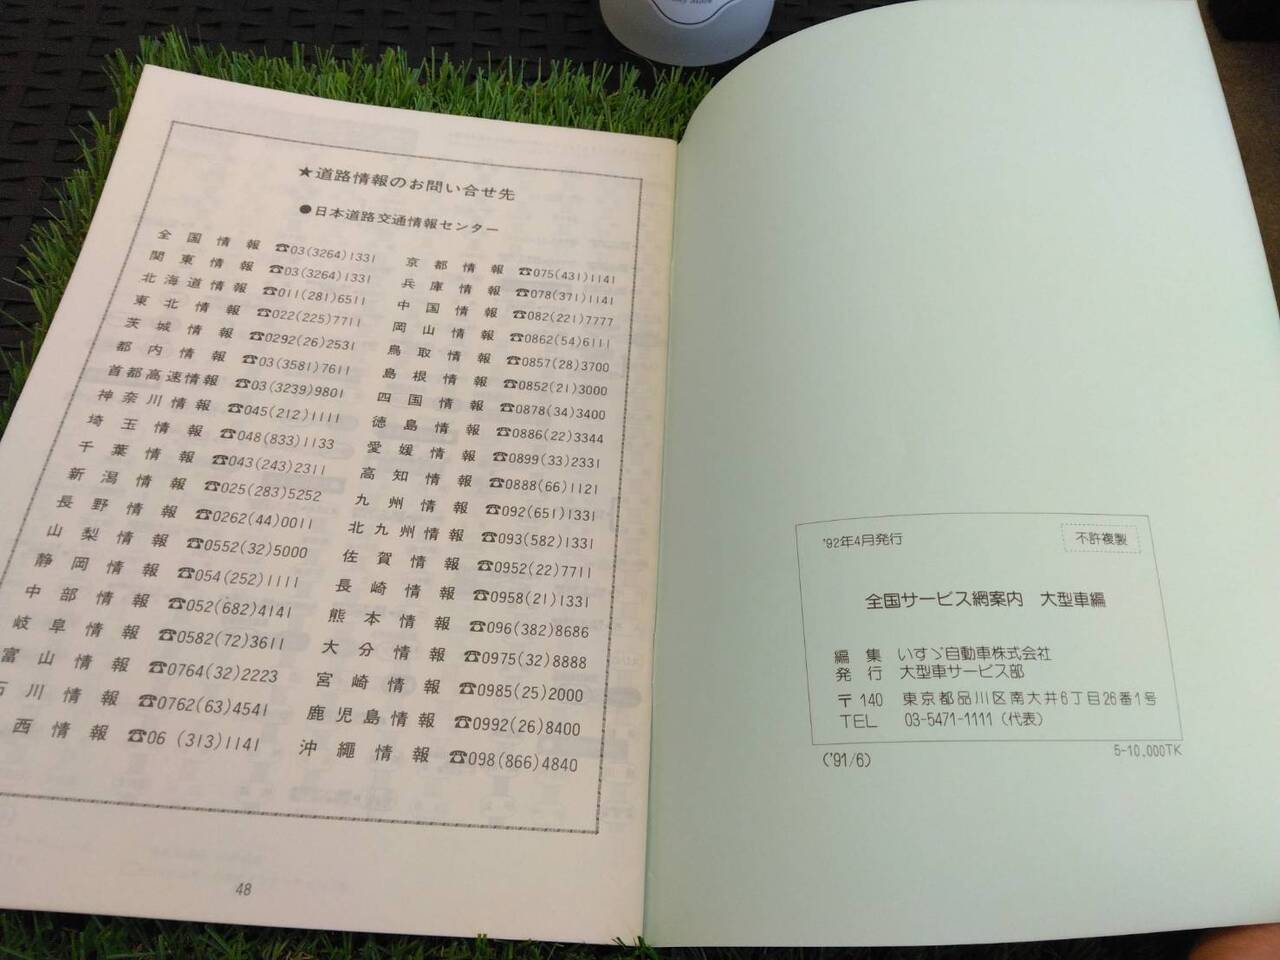 ★道路情報のお問い合せ先
●日本道路交通情報センター
全国情報 ☎03(3264)1331
関東情報 ☎03(3264)1331
北海道情報 ☎011(281)6511
東北情報 ☎022(225)7711
茨城情報 ☎0292(26)2531
都内情報 ☎03(3581)7611
首都高速情報 ☎03(3239)9801
神奈川情報 ☎045(212)1111
埼玉情報 ☎048(833)1133
千葉情報 ☎043(243)2311
新潟情報 ☎025(283)5252
長野情報 ☎0262(44)0011
山梨情報 ☎0552(32)5000
静岡情報 ☎054(252)1111
中部情報 ☎052(682)4141
岐阜情報 ☎0582(72)3611
富山情報 ☎0764(32)2223
石川情報 ☎0762(63)4541
西情報 ☎06 (313)1141
京都情報 ☎075(431)1141
兵庫情報 ☎078(371)1141
中国情報 ☎082(221)7777
岡山情報 ☎0862(54)6111
鳥取情報 ☎0857(28)3700
島根情報 ☎0852(21)3000
四国情報 ☎0878(34)3400
徳島情報 ☎0886(22)3344
愛媛情報 ☎0899(33)2331
高知情報 ☎0888(66)1121
九州情報 ☎092(651)1331
北九州情報 ☎093(582)1331
佐賀情報 ☎0952(22)7711
長崎情報 ☎0958(21)1331
熊本情報 ☎096(382)8686
大分情報 ☎0975(32)8888
宮崎情報 ☎0985(25)2000
鹿児島情報 ☎0992(26)8400
沖縄情報 ☎098(866)4840
48
'92年4月発行
不許複製
全国サービス網案内 大型車編
編集 いすゞ自動車株式会社
発行 大型車サービス部
〒140 東京都品川区南大井6丁目26番1号
TEL 03-5471-1111(代表)
('91/6)
5-10,000TK